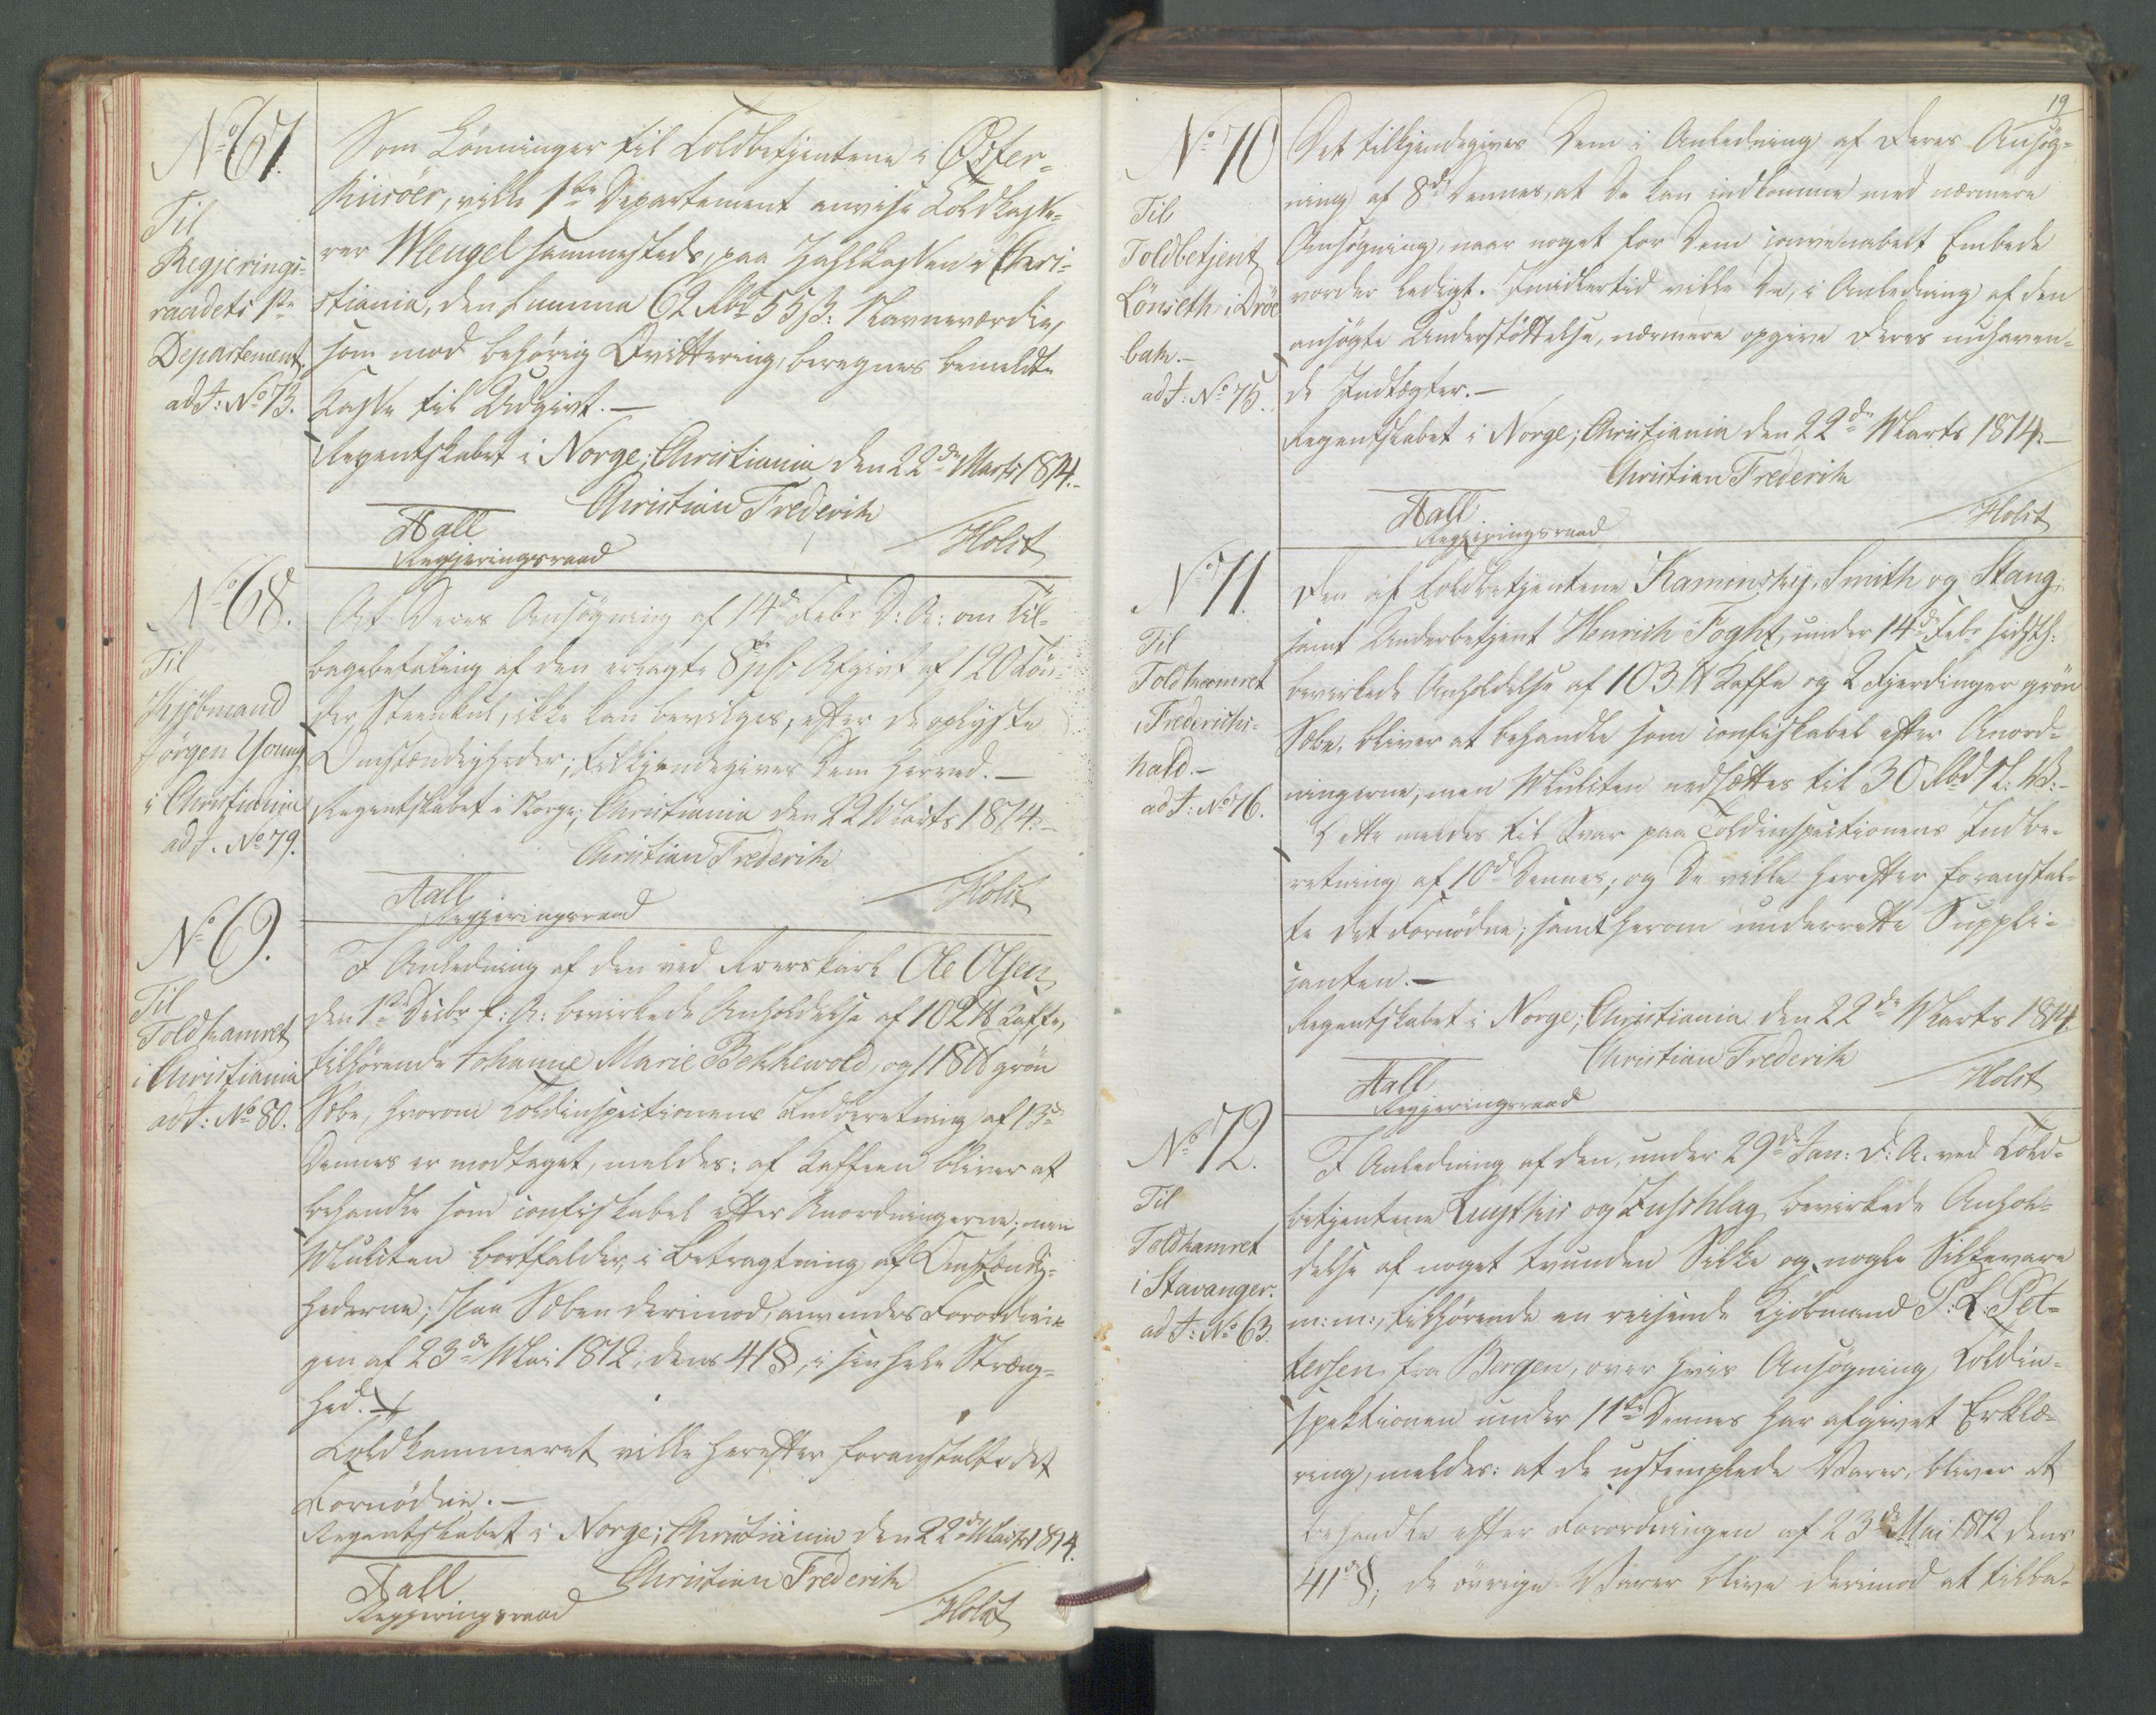 No 67.
Til
Regjerings-
raadets 1ste
Departement.
ad J: No 73.
Som Lønninger til Toldbetjentene i Øster-
Riisøer, ville 1ste Departement anvise Toldkasse-
rer Mengel sammesteds, paa Zahlkassen i Chri-
stiania, den Summa 62 Rbd 55 s: Navneværdie,
som mod behørig Qvittering, beregnes bemeldte
Kasse til Udgivt.—
Regentskabet i Norge; Christiania den 22de Marts 1814.-
Christian Frederik
Aall
Regjeringsraad
Holst
No 68.
Til
Kjøbmand
Jørgen Young
i Christiania
ad J. No 79.
At Deres Ansøgning af 14de Febr D: A: om Til-
bagebetaling af den erlagte 8 pCt Afgivt af 120 Tøn-
der Steenkul, ikke kan bevilges, efter de oplyste
Omstændigheder; tilkjendegives Dem herved.—
Regentskabet i Norge; Christiania den 22 Marts 1814.-
Christian Frederik
Aall
Regjeringsraad
Holst
No 69.
Til
Toldkamret
i Christiania
ad J: No 80.
I Anledning af den ved Roerskarl Ole Olsen
den 1ste Decbr f: A: bevirkede Anholdelse af 102 ℔ Kaffe,
tilhørende Johanne Marie Bekkevold, og 118 ℔ grøn
Sæbe, hvorom Toldinspectionens Indberetning af 13de
Dennes er modtaget, meldes: at Kaffeen bliver at
behandle som confiskabel efter Anordningerne; men
Mulcten bortfalder i Betragtning af Omstændig-
hederne; paa Sæben derimod, anvendes Forordnin-
gen af 23de Mai 1812, dens 41 §, i sin hele Stræng-
hed.—
Toldkammeret ville herefter foranstalte det
Fornødne.—
Regentskabet i Norge; Christiania den 22de Marts 1814.
Christian Frederik
Aall
Regjeringsraad
Holst
19
No 70
Til
Toldbetjent
Lönseth i Dröe
bak.-
ad J: No 75.
Det tilkjendegives Dem i Anledning af Deres Ansøg-
ning af 8de Dennes, at De kan indkomme med nærmere
Ansøgning, naar noget for Dem convenabelt Embede
vorder ledigt. Imidlertid ville De, i Anledning af den
ansøgte Understøttelse, nærmere opgive Deres nuhaven-
de Indtægter.—
Regentskabet i Norge; Christiania den 22de Marts 1814.-
Christian Frederik
Aall
Regjeringsraad
Holst
No 71.
Til
Toldkamret
i Frederichs-
hald.-
ad J: No 76.
Den af Toldbetjentene Kaminsky, Smith og Stang,
samt Underbetjent Henrich Foght, under 14de Febr sidstl:
bevirkede Anholdelse af 103 ℔ Kaffe og 2 Fjerdinger grøn
Sæbe, bliver at behandle som confiskabel efter Anord-
ningerne; men Mulcten nedsættes til 30 Rbd
Dette meldes til Svar paa Toldinspectionens Indbe-
retning af 10de Dennes; og De ville herefter foranstal-
te det Fornødne; samt herom underrette Suppli-
canten.—
Regentskabet i Norge; Christiania den 22de Marts 1814.
Christian Frederik
Aall
Regjeringsraad
Holst
No 72.
Til
Toldkamret
i Stavanger.
ad J: No 63.
I Anledning af den, under 29de Jan: D: A. ved Told-
betjentene og Zuschlag bevirkede Anhol-
delse af noget tvunden Silke og nogle Silkevare
m: m:, tilhørende en reisende Kjøbmand P: L: Pet-
tersen fra Bergen, over hvis Ansøgning Toldin-
spektionen under 11te Dennes har afgivet Erklæ-
ring, meldes: at de ustemplede Varer, bliver at
behandle efter Forordningen af 23de Mai 1812 dens
41de §; de øvrige Varer blive derimod at tilba-